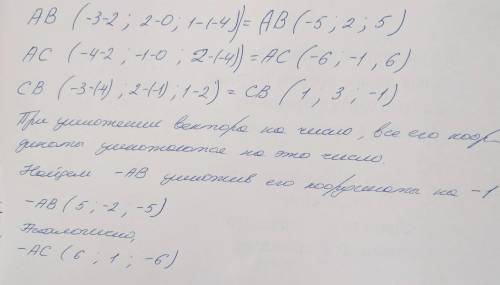 AB (-3-2 ; 2-0 ; 1-(-4)) = AB (-5 ; 2 ; 5)
AC (-4-2 ; -1-0 ; 2-(-4)) = AC (-6 ; -1 , 6)
CB (-3-(-4) ; 2-(-1) ; 1-2) = CB (1 , 3 ; -1)
При умножении вектора на число, все его коор-
динаты умножаются на это число.
Найдем -AB умножив его координаты на -1
-AB (5 ; -2 ; -5)
Аналогично,
-AC (6 ; 1 ; -6)